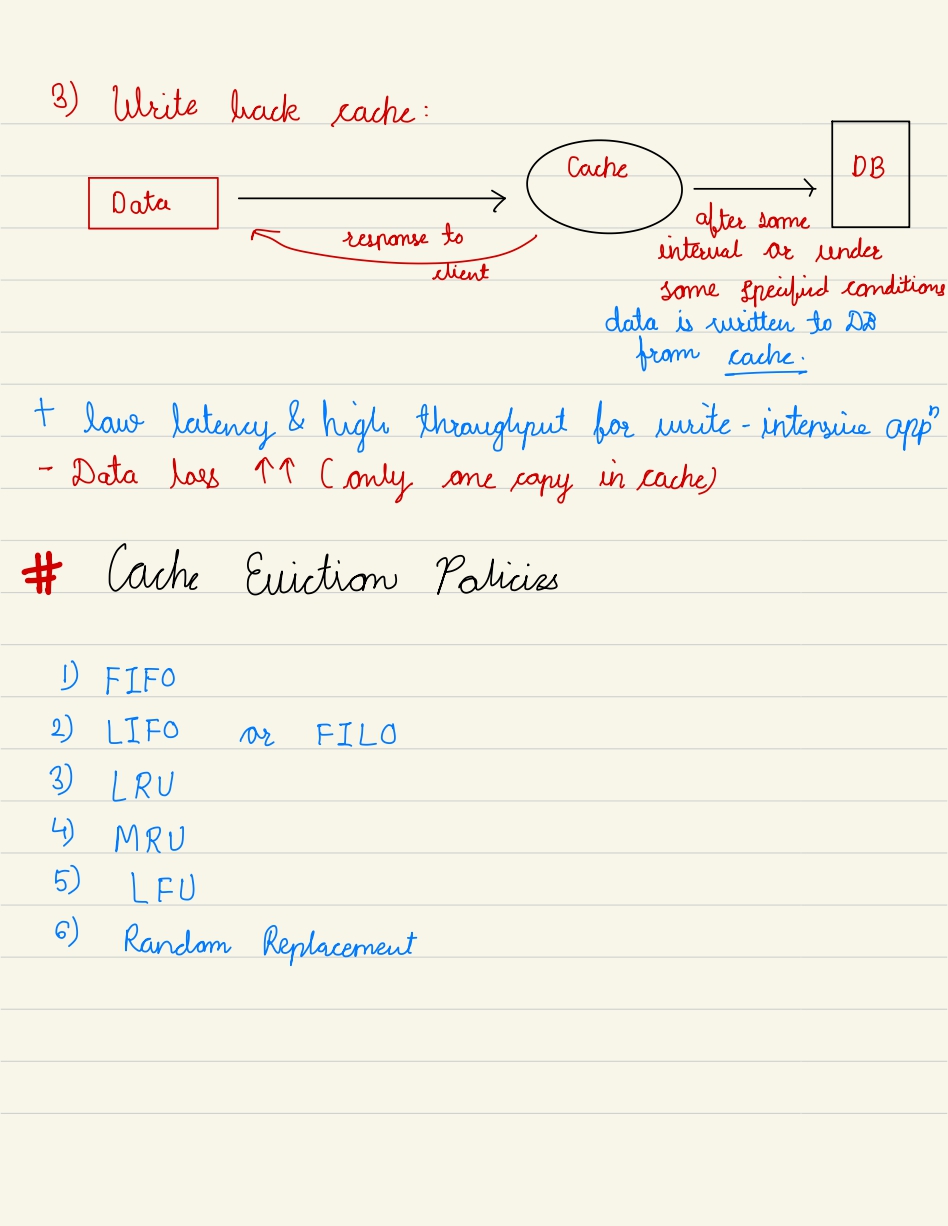 3) Write back cache:
Data
Cache
DB
response to
client
after some
interval or under
some specified conditions
data is written to DB
from cache.
+ low latency & high throughput for write-intensive appⁿ
- Data loss ↑↑ (only one copy in cache)
# Cache Eviction Policies
1) FIFO
2) LIFO or FILO
3) LRU
4) MRU
5) LFU
6) Random Replacement